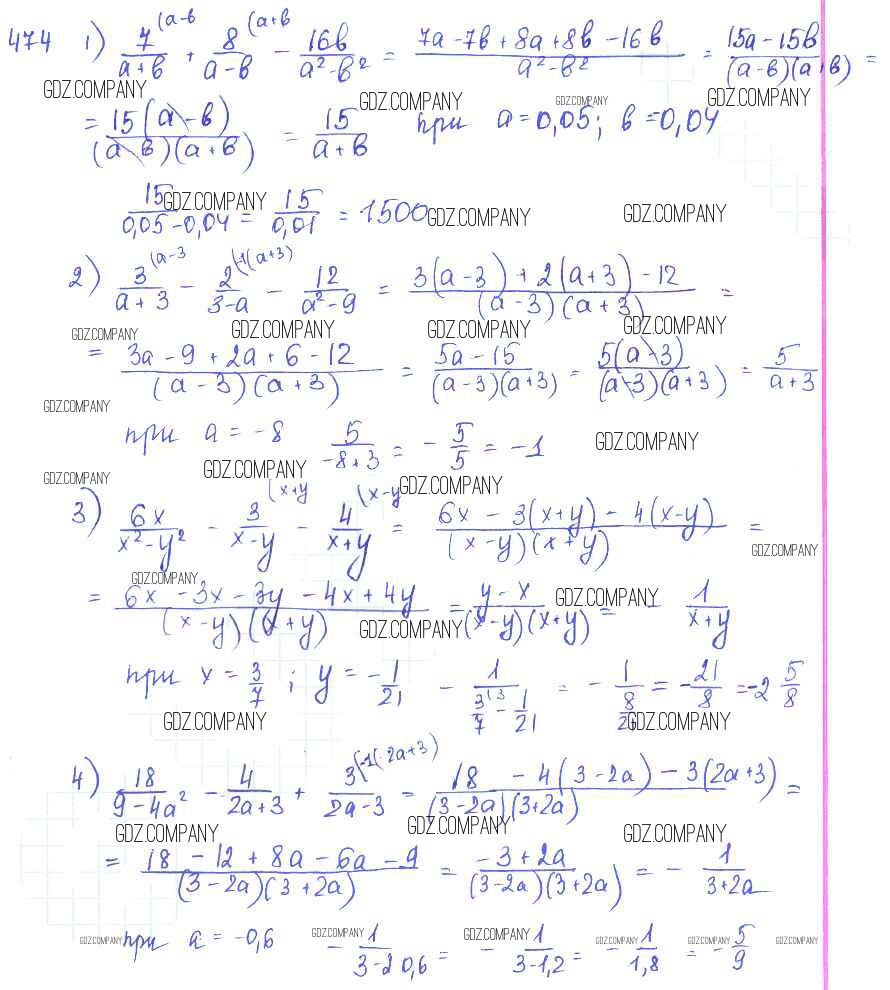 474 1) 7(a-в / a+в + 8(a+в / a-в - 16в / a²-в² = 7a-7в+8a+8в-16в / a²-в² = 15a-15в / (a-в)(a+в) =
GDZ.COMPANY GDZ.COMPANY GDZ.COMPANY GDZ.COMPANY
= 15(a-в) / (a-в)(a+в) = 15 / a+в при a=0,05; в=0,04
15 / 0,05-0,04 = 15 / 0,01 = 1500
GDZ.COMPANY GDZ.COMPANY GDZ.COMPANY
2) 3(a-3 / a+3 - 2(-1(a+3) / 3-a - 12 / a²-9 = 3(a-3)+2(a+3)-12 / (a-3)(a+3) =
GDZ.COMPANY GDZ.COMPANY GDZ.COMPANY GDZ.COMPANY
= 3a-9+2a+6-12 / (a-3)(a+3) = 5a-15 / (a-3)(a+3) = 5(a-3) / (a-3)(a+3) = 5 / a+3
GDZ.COMPANY
при a=-8 5 / -8+3 = - 5/5 = -1
GDZ.COMPANY
GDZ.COMPANY GDZ.COMPANY GDZ.COMPANY
3) 6x / x²-y² - 3(x+y / x-y - 4(x-y / x+y = 6x-3(x+y)-4(x-y) / (x-y)(x+y) =
GDZ.COMPANY GDZ.COMPANY
= 6x-3x-3y-4x+4y / (x-y)(x+y) = y-x / (x-y)(x+y) = - 1 / x+y
GDZ.COMPANY GDZ.COMPANY
при x=3/7; y=-1/21 - 1 / 3(3/7 - 1/21 = - 1 / 8/21 = - 21/8 = -2 5/8
GDZ.COMPANY GDZ.COMPANY
4) 18 / 9-4a² - 4 / 2a+3 + 3(-1(2a+3) / 2a-3 = 18-4(3-2a)-3(2a+3) / (3-2a)(3+2a) =
GDZ.COMPANY GDZ.COMPANY GDZ.COMPANY
= 18-12+8a-6a-9 / (3-2a)(3+2a) = -3+2a / (3-2a)(3+2a) = - 1 / 3+2a
при a=-0,6 - 1 / 3-2 0,6 = - 1 / 3-1,2 = - 1 / 1,8 = - 5/9
GDZ.COMPANY GDZ.COMPANY GDZ.COMPANY GDZ.COMPANY GDZ.COMPANY GDZ.COMPANY